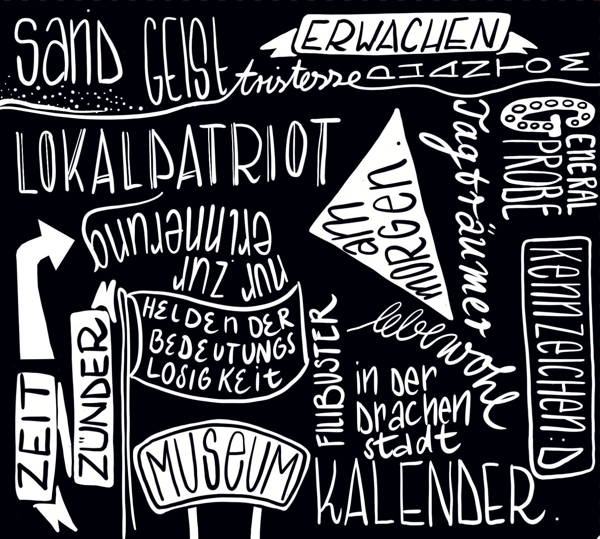 SanD
GEISt
tristesse
ERWACHEN
PHANTOM
LOKALPATRIOT
am
MORGEN.
Tagträumer
GENERAL
PROBE
nur zur
erinnerung
HELDEN DER
BEDEUTUNGS
LOSIGKEIt
ZEIT
ZÜNDER
FILIBUSTER
lebewohl
kennzeichen:D
in der
Drachen
stadt
MUSEUM
KALENDER.